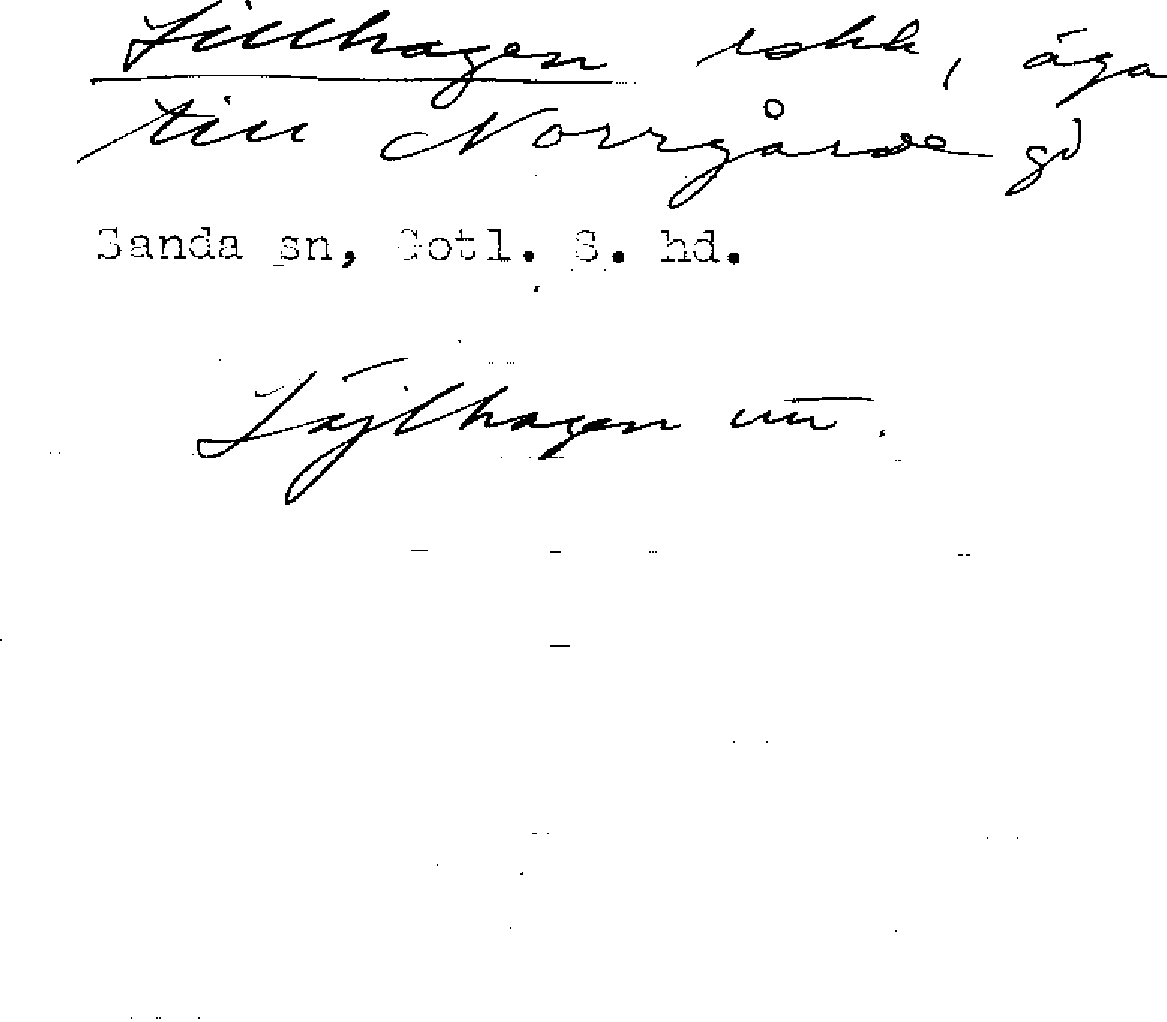 Lillhagen iskk, äga
till Norrgårde gd
Sanda sn, Gotl. S. hd.
Läjlhagen un̄.